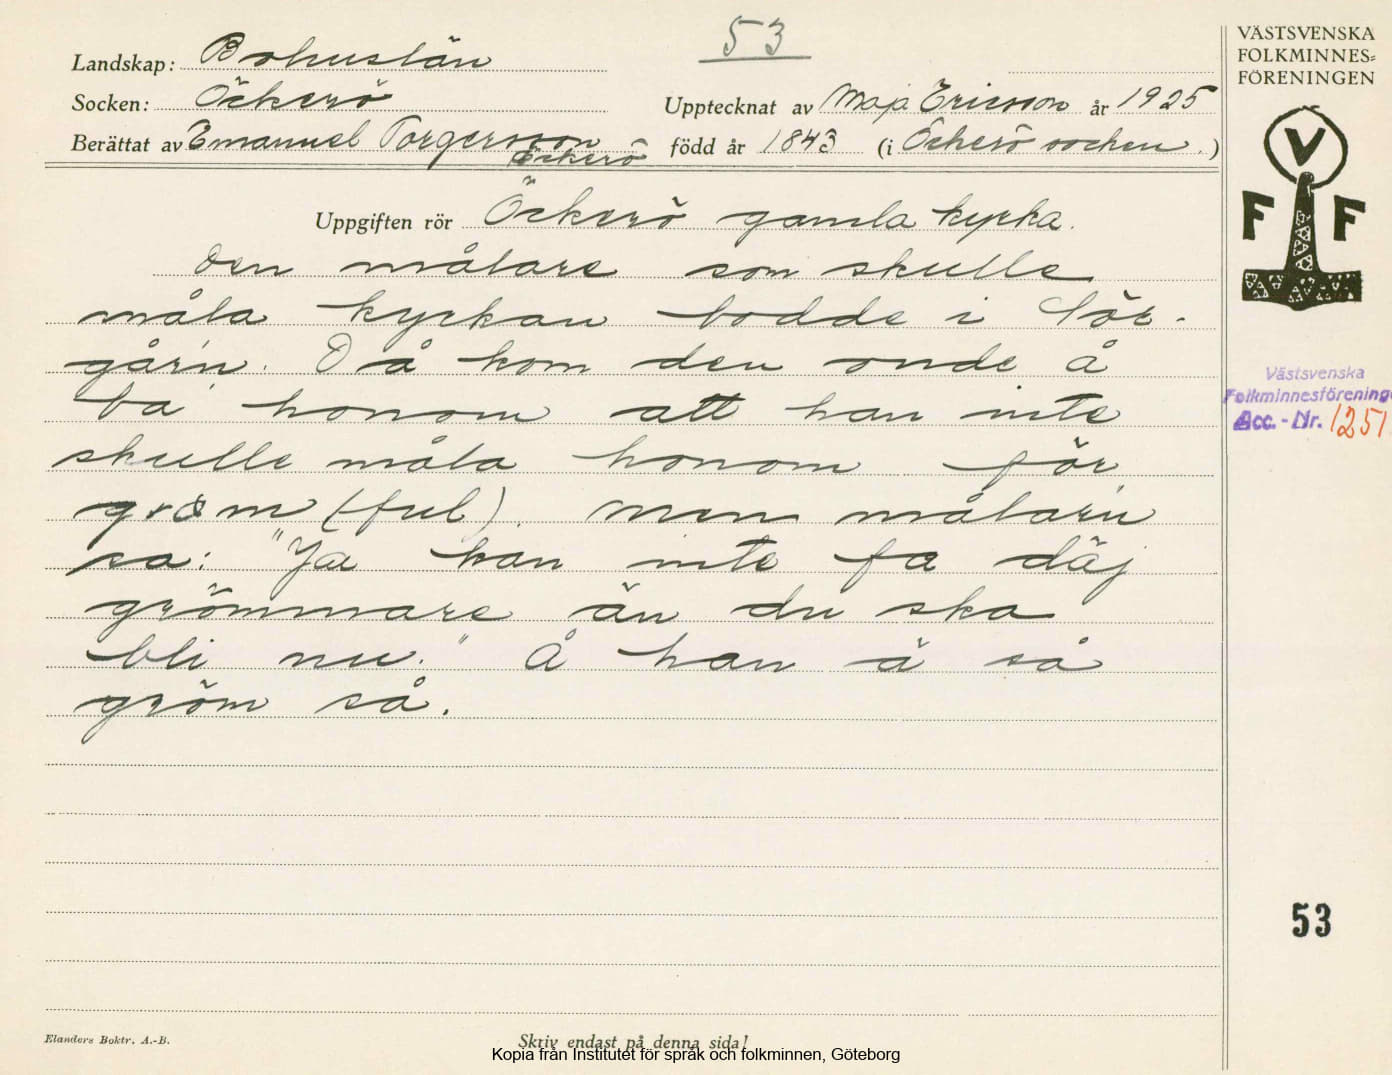 53
Landskap: Bohuslän
Socken: Öckerö
Upptecknat av Maja Ericsson år 1925
Berättat av Emanuel Torgersson född år 1843 (i Öckerö socken.)
Öckerö
Uppgiften rör Öckerö gamla kyrka.
Den målare som skulle
måla kyrkan bodde i Sör-
går'n. Då kom den onde å
ba honom att han inte
skulle måla honom för
gröm (ful). Men målarn
sa: "Ja kan inte få däj
grömmare än du ska
bli nu." Å han ä så
gröm så.
VÄSTSVENSKA
FOLKMINNES=
FÖRENINGEN
V
F F
Västsvenska
Folkminnesförening
Acc.-Nr. 1251
53
Elanders Boktr. A.-B.
Skriv endast på denna sida!
Kopia från Institutet för språk och folkminnen, Göteborg